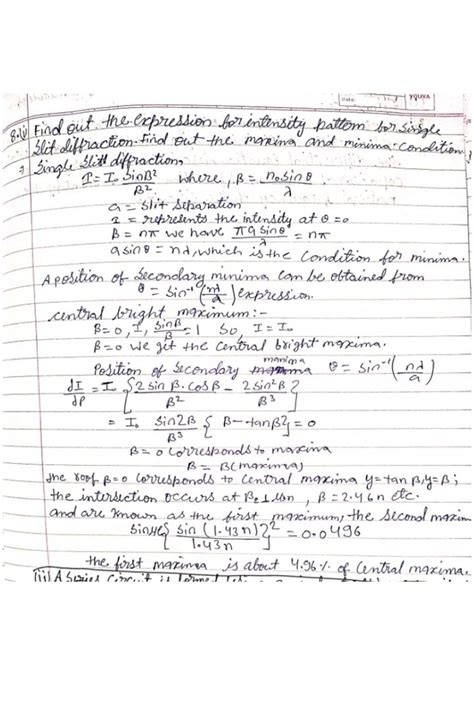 Date:
YOUVA
8.(i) Find out the expression for intensity pattern for single
slit diffraction. Find out the maxima and minima condition
Single Slit diffraction,
I = I₀ SinB² / B² where, B = πa sinθ / λ
a = slit separation
I = represents the intensity at θ = 0
B = nπ we have πa sinθ / λ = nπ
a sinθ = nλ, which is the condition for minima.
A position of Secondary minima can be obtained from
θ = Sin⁻¹ (nλ/a) expression.
central bright maximum:-
B = 0, I, SinB / B = 1 So, I = I₀
B = 0 we get the central bright maxima.
Position of Secondary maxima θ = Sin⁻¹ (nλ/a)
dI/dβ = I₀ { 2 sin B. cos B / B² - 2 sin² B / B³ }
= I₀ Sin2B / B³ { B - tanB } = 0
B = 0 corresponds to maxima
B = B (maxima)
the roof B = 0 corresponds to Central maxima y = tan B, y = B;
the intersection occurs at B = 2.46π etc.
and are known as the first maximum, the second maxim
{ sin (1.43π) / 1.43π }² = 0.0496
the first maxima is about 4.96% of Central maxima.
(ii) A Series Circuit is formed